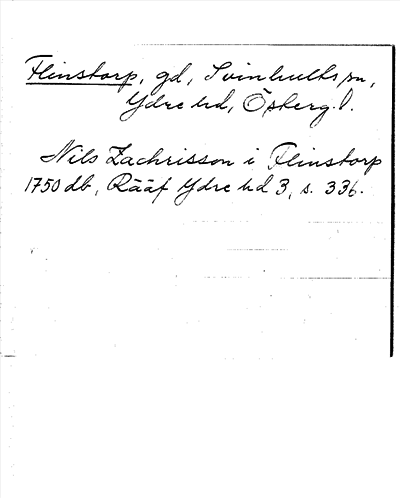 Flinstorp, gd, Svinhults sn,
Ydre hd, Österg. l.
Nils Zachrisson i Flinstorp
1750 db, Rääf Ydre hd 3, s. 336.